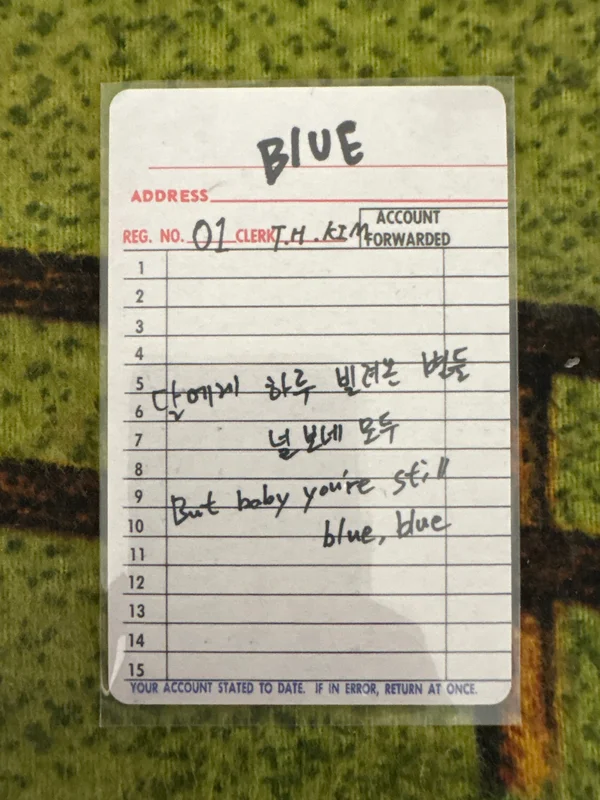 BLUE
ADDRESS
REG. NO. 01 CLERK T.H.KIM ACCOUNT FORWARDED
1
2
3
4
5
달에게 하루 빌려온 별들
6
7
널 보네 모두
8
9
But baby you're still
10
blue, blue
11
12
13
14
15
YOUR ACCOUNT STATED TO DATE. IF IN ERROR, RETURN AT ONCE.